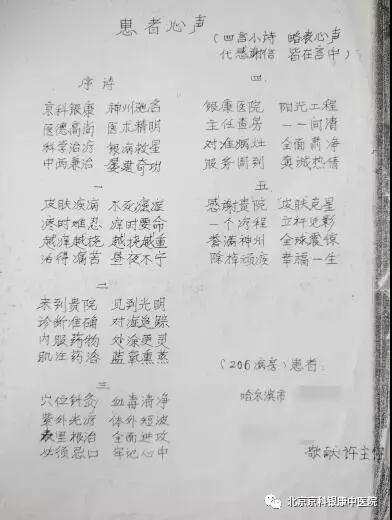 患者心声
(四言小诗 略表心声
代感谢信 皆在言中)
序诗
京科银康 神州驰名
医德高尚 医术精明
科学治疗 银病救星
中西兼治 屡建奇功
一
皮肤疾病 不死癌症
疼时难忍 痒时要命
越痒越挠 越挠越重
治得痛苦 昼夜不宁
二
来到贵院 见到光明
诊断准确 对症追踪
内服药物 外涂更灵
肌注药浴 蓝氧熏蒸
三
穴位针灸 血毒清净
紫外光疗 体外短波
表里根治 全面进攻
必须忌口 牢记心中
四
银康医院 阳光工程
主任查房 一一问清
对准病灶 全面肃净
服务周到 真诚热情
五
感谢贵院 皮肤克星
一个疗程 立杆见影
誉满神州 全球震惊
除掉顽疾 幸福一生
(206病房)患者:
哈尔滨市
敬献许主任
北京京科银康中医院